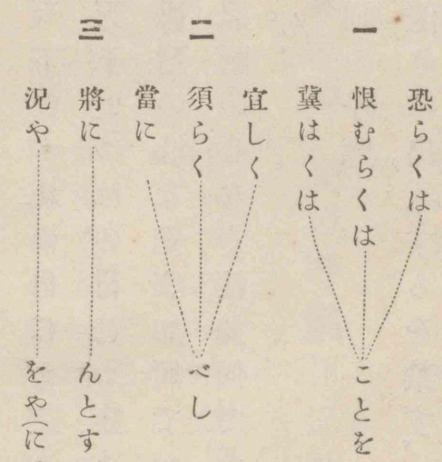 一
恐らくは
恨むらくは
冀はくは
ことを
二
宜しく
須らく
當に
べし
三
將に
んとす
況や
をや(に